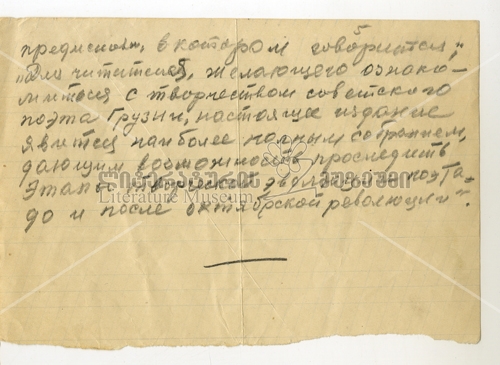 предислов., в котором говорится:
"Для читателя, желающего ознако-
миться с творчеством советского
поэта Грузии, настоящее издание
явится наиболее полным собранием,
дающим возможность проследить
этапы творческой эволюции поэта
до и после октябрьской революции".
ლიტერატურის მუზეუმი
Literature Museum